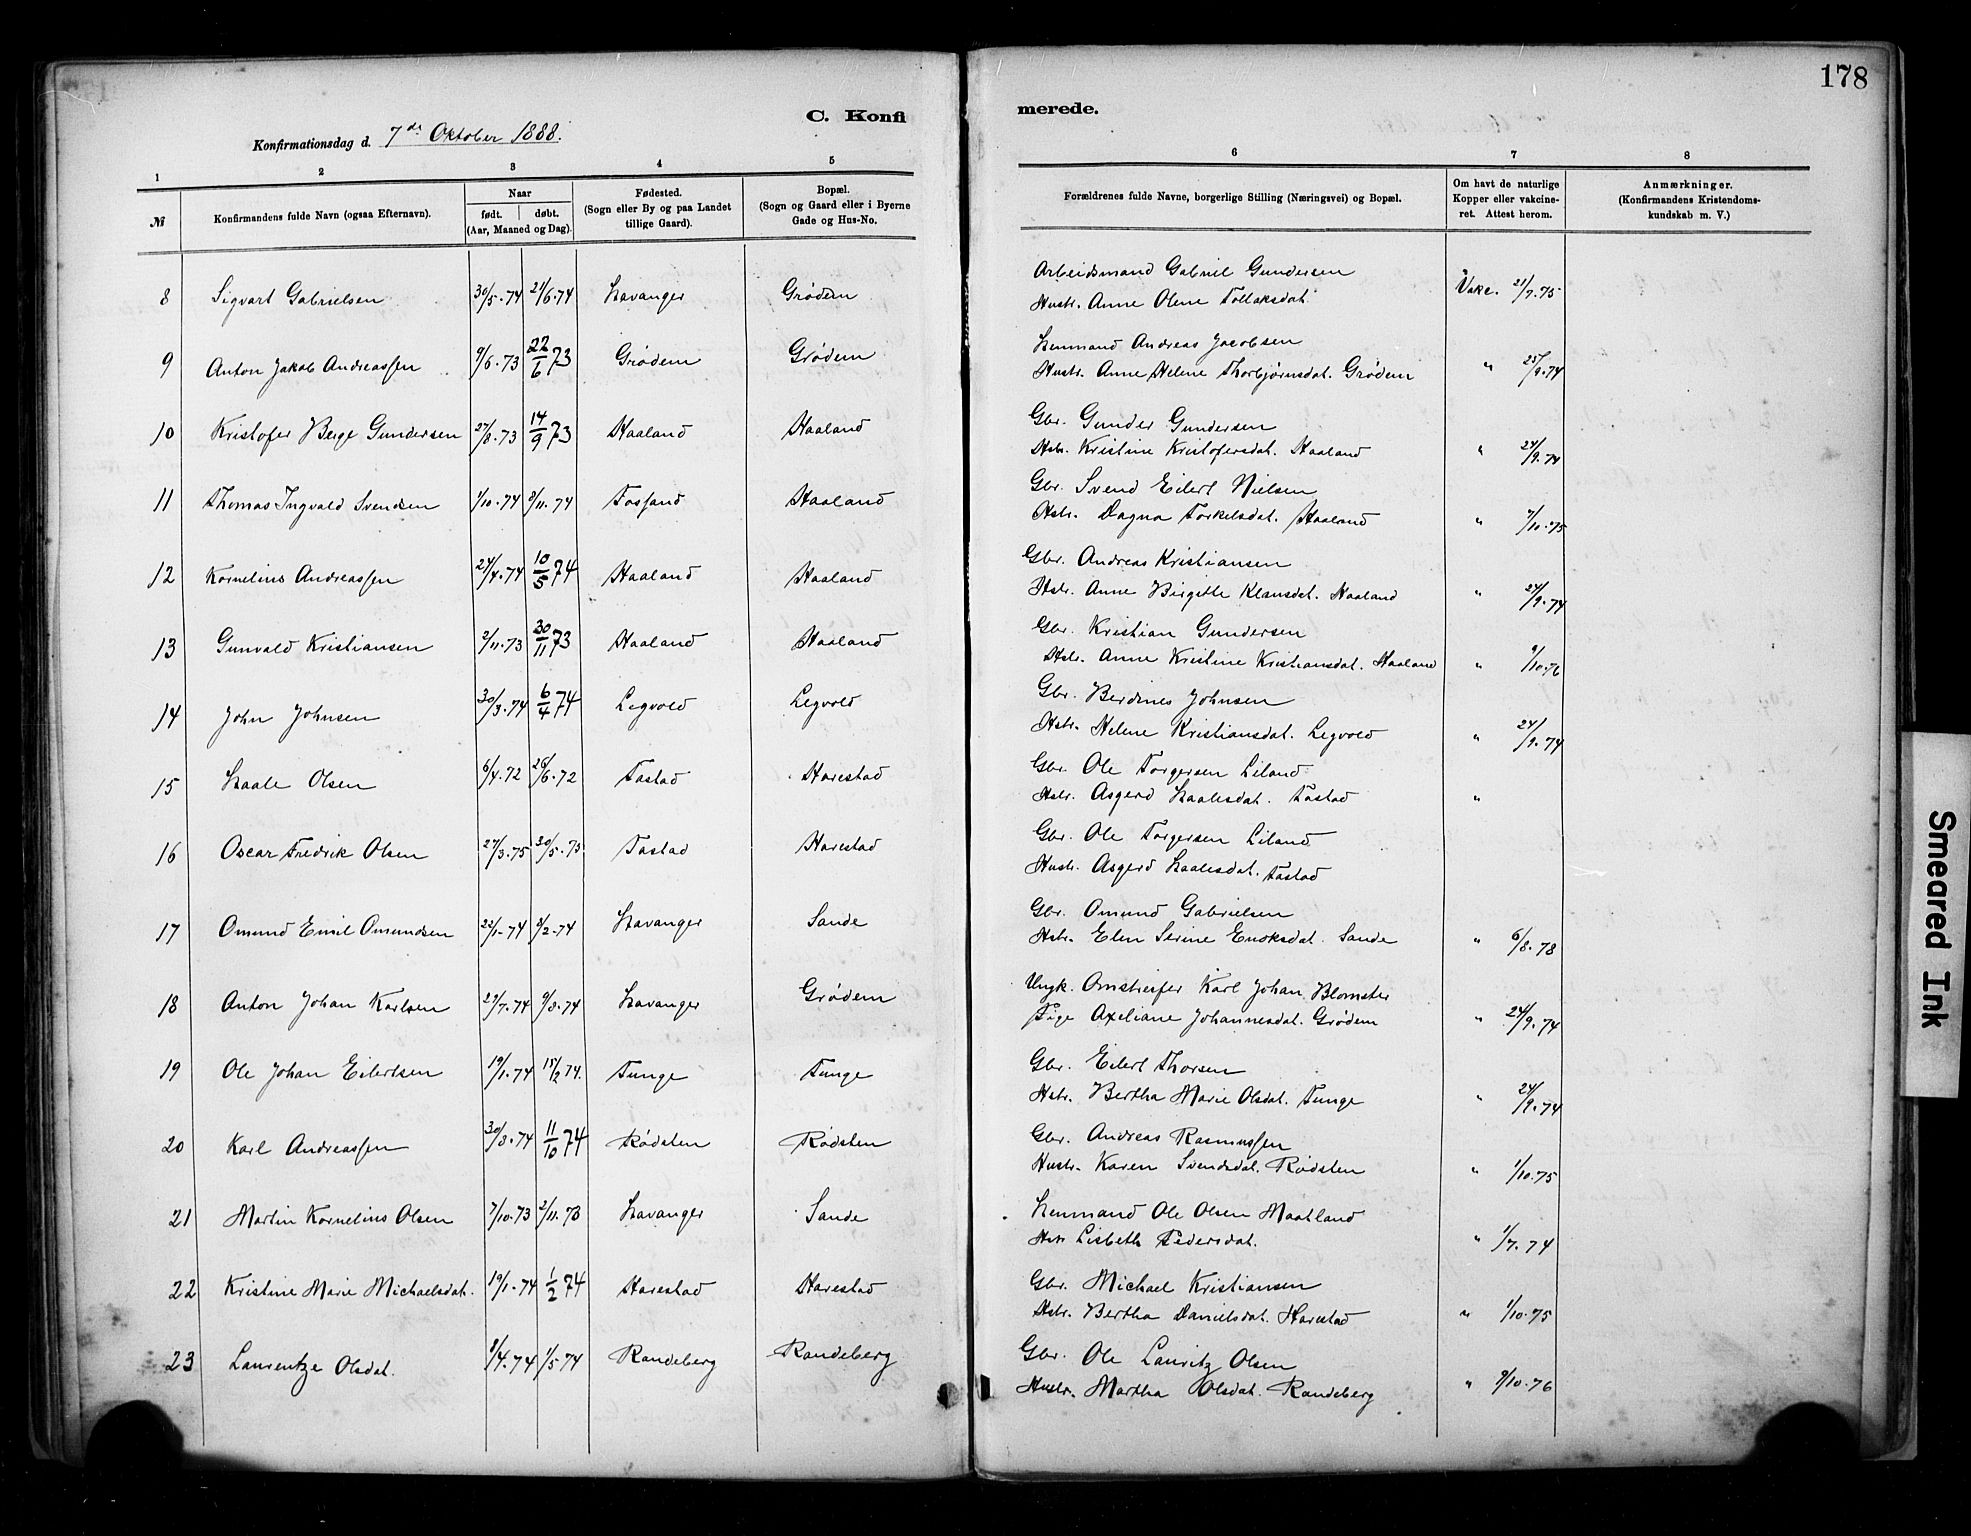 178
C. Konfi merede.
Konfirmationsdag d. 7de Oktober 1888.
1 2 3 4 5 6 7 8
№ Konfirmandens fulde Navn (ogsaa Efternavn). Naar født. døbt. (Aar, Maaned og Dag). Fødested. (Sogn eller By og paa Landet tillige Gaard). Bopæl. (Sogn og Gaard eller i Byerne Gade og Hus-No. Forældrenes fulde Navne, borgerlige Stilling (Næringsvei) og Bopæl. Om havt de naturlige Kopper eller vakcineret. Attest herom. Anmærkninger. (Konfirmandens Kristendomskundskab m. V.)
8 Sigvart Gabrielsen 30/5.74 21/6.74 Stavanger Grødem Arbeidsmand Gabriel Gundersen
Hustr. Anne Olene Tollaksdat. Vakc. 21/7.75
9 Anton Jakob Andreassen 9/6.73 22/6 73 Grødem Grødem Leumand Andreas Jacobsen
Hustr. Anne Helene Thorbjørnsdat. Grødem " 25/9.74
10 Kristofer Berge Gundersen 27/8.73 14/9 73 Haaland Haaland Gbr. Gunder Gundersen
Hstr. Kristine Kristofersdat. Haaland " 24/9.74
11 Thomas Ingvald Svendsen 1/10.74 8/11.74 Fosfand Haaland Gbr. Svend Eilert Nielsen
Hstr. Dagna Torkelsdat. Haaland " 7/10.75
12 Kornelius Andreassen 24/4.74 10/5 74 Haaland Haaland Gbr. Andreas Kristiansen
Hstr. Anne Birgitte Klausdat. Haaland " 24/9.74
13 Gunvald Kristiansen 2/11.73 30/11 73 Haaland Haaland Gbr. Kristian Gundersen
Hstr. Anne Kristine Kristiansdat. Haaland " 9/10.76
14 John Johnsen 30/3.74 6/4 74 Legvold Legvold Gbr. Berdines Johnsen
Hstr. Helene Kristiansdat. Legvold " 24/9.74
15 Staale Olsen 6/4.72 26/6.72 Tastad Harestad Gbr. Ole Torgersen Eiland
Hstr. Asgerd Staalesdat. Tastad "
16 Oscar Fredrik Olsen 27/3.75 30/5.75 Tastad Harestad Gbr. Ole Torgersen Eiland
Hustr. Asgerd Staalesdat. Tastad
17 Omund Emil Omundsen 22/1.74 8/2.74 Stavanger Sande Gbr. Omund Gabrielsen
Hstr. Elen Serine Enoksdat. Sande " 6/8.78
18 Anton Johan Karlsen 29/7.74 9/8.74 Stavanger Grødem Ungk. Omstreifer Karl Johan Blomster
Pige Axeliane Johannesdat. Grødem " 24/9.74
19 Ole Johan Eilertsen 19/1.74 15/2 74. Tunge Tunge Gbr. Eilert Thorsen
Hstr. Bertha Marie Olsdat. Tunge " 24/9.74
20 Karl Andreassen 30/8.74 11/10 74 Rødsten Rødsten Gbr. Andreas Rasmussen
Hustr. Karen Svendsdat. Rødsten " 1/10.75
21 Martin Kornelius Olsen 7/10.73 2/11.73 Stavanger Sande Leumand Ole Olsen Maatland
Hstr Lisbeth Pedersdat. " 1/7.74
22 Kristine Marie Michaelsdat. 19/1.74 1/2 74 Harestad Harestad Gbr. Michael Kristiansen
Hstr. Bertha Danielsdat. Harestad " 1/10.75
23 Laurentze Olsdat. 8/4.74 1/5 74 Randeberg Randeberg Gbr. Ole Lauritz Olsen
Hustr. Martha Olsdat. Randeberg " 9/10.76
Smeared Ink